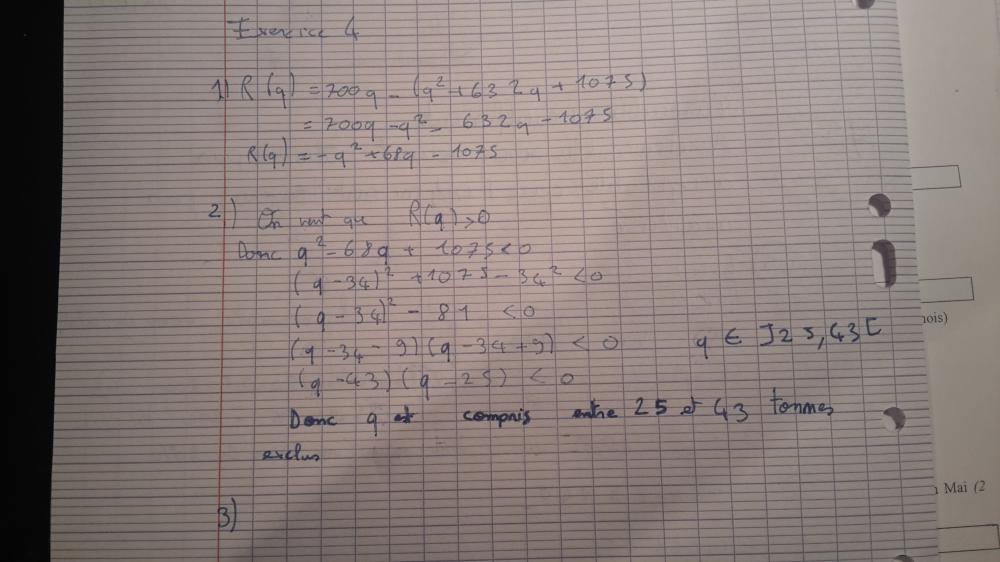 Exercice 4
1) R(q) = 700q - (q² + 632q + 1075)
= 700q - q² - 632q - 1075
R(q) = - q² + 68q - 1075
2) On veut que R(q) > 0
Donc q² - 68q + 1075 < 0
(q - 34)² + 1075 - 34² < 0
(q - 34)² - 81 < 0
(q - 34 - 9)(q - 34 + 9) < 0 q ∈ ]25,43[
(q - 43)(q - 25) < 0
Donc q est compris entre 25 et 43 tonnes
exclus
3)
nois)
Mai (2